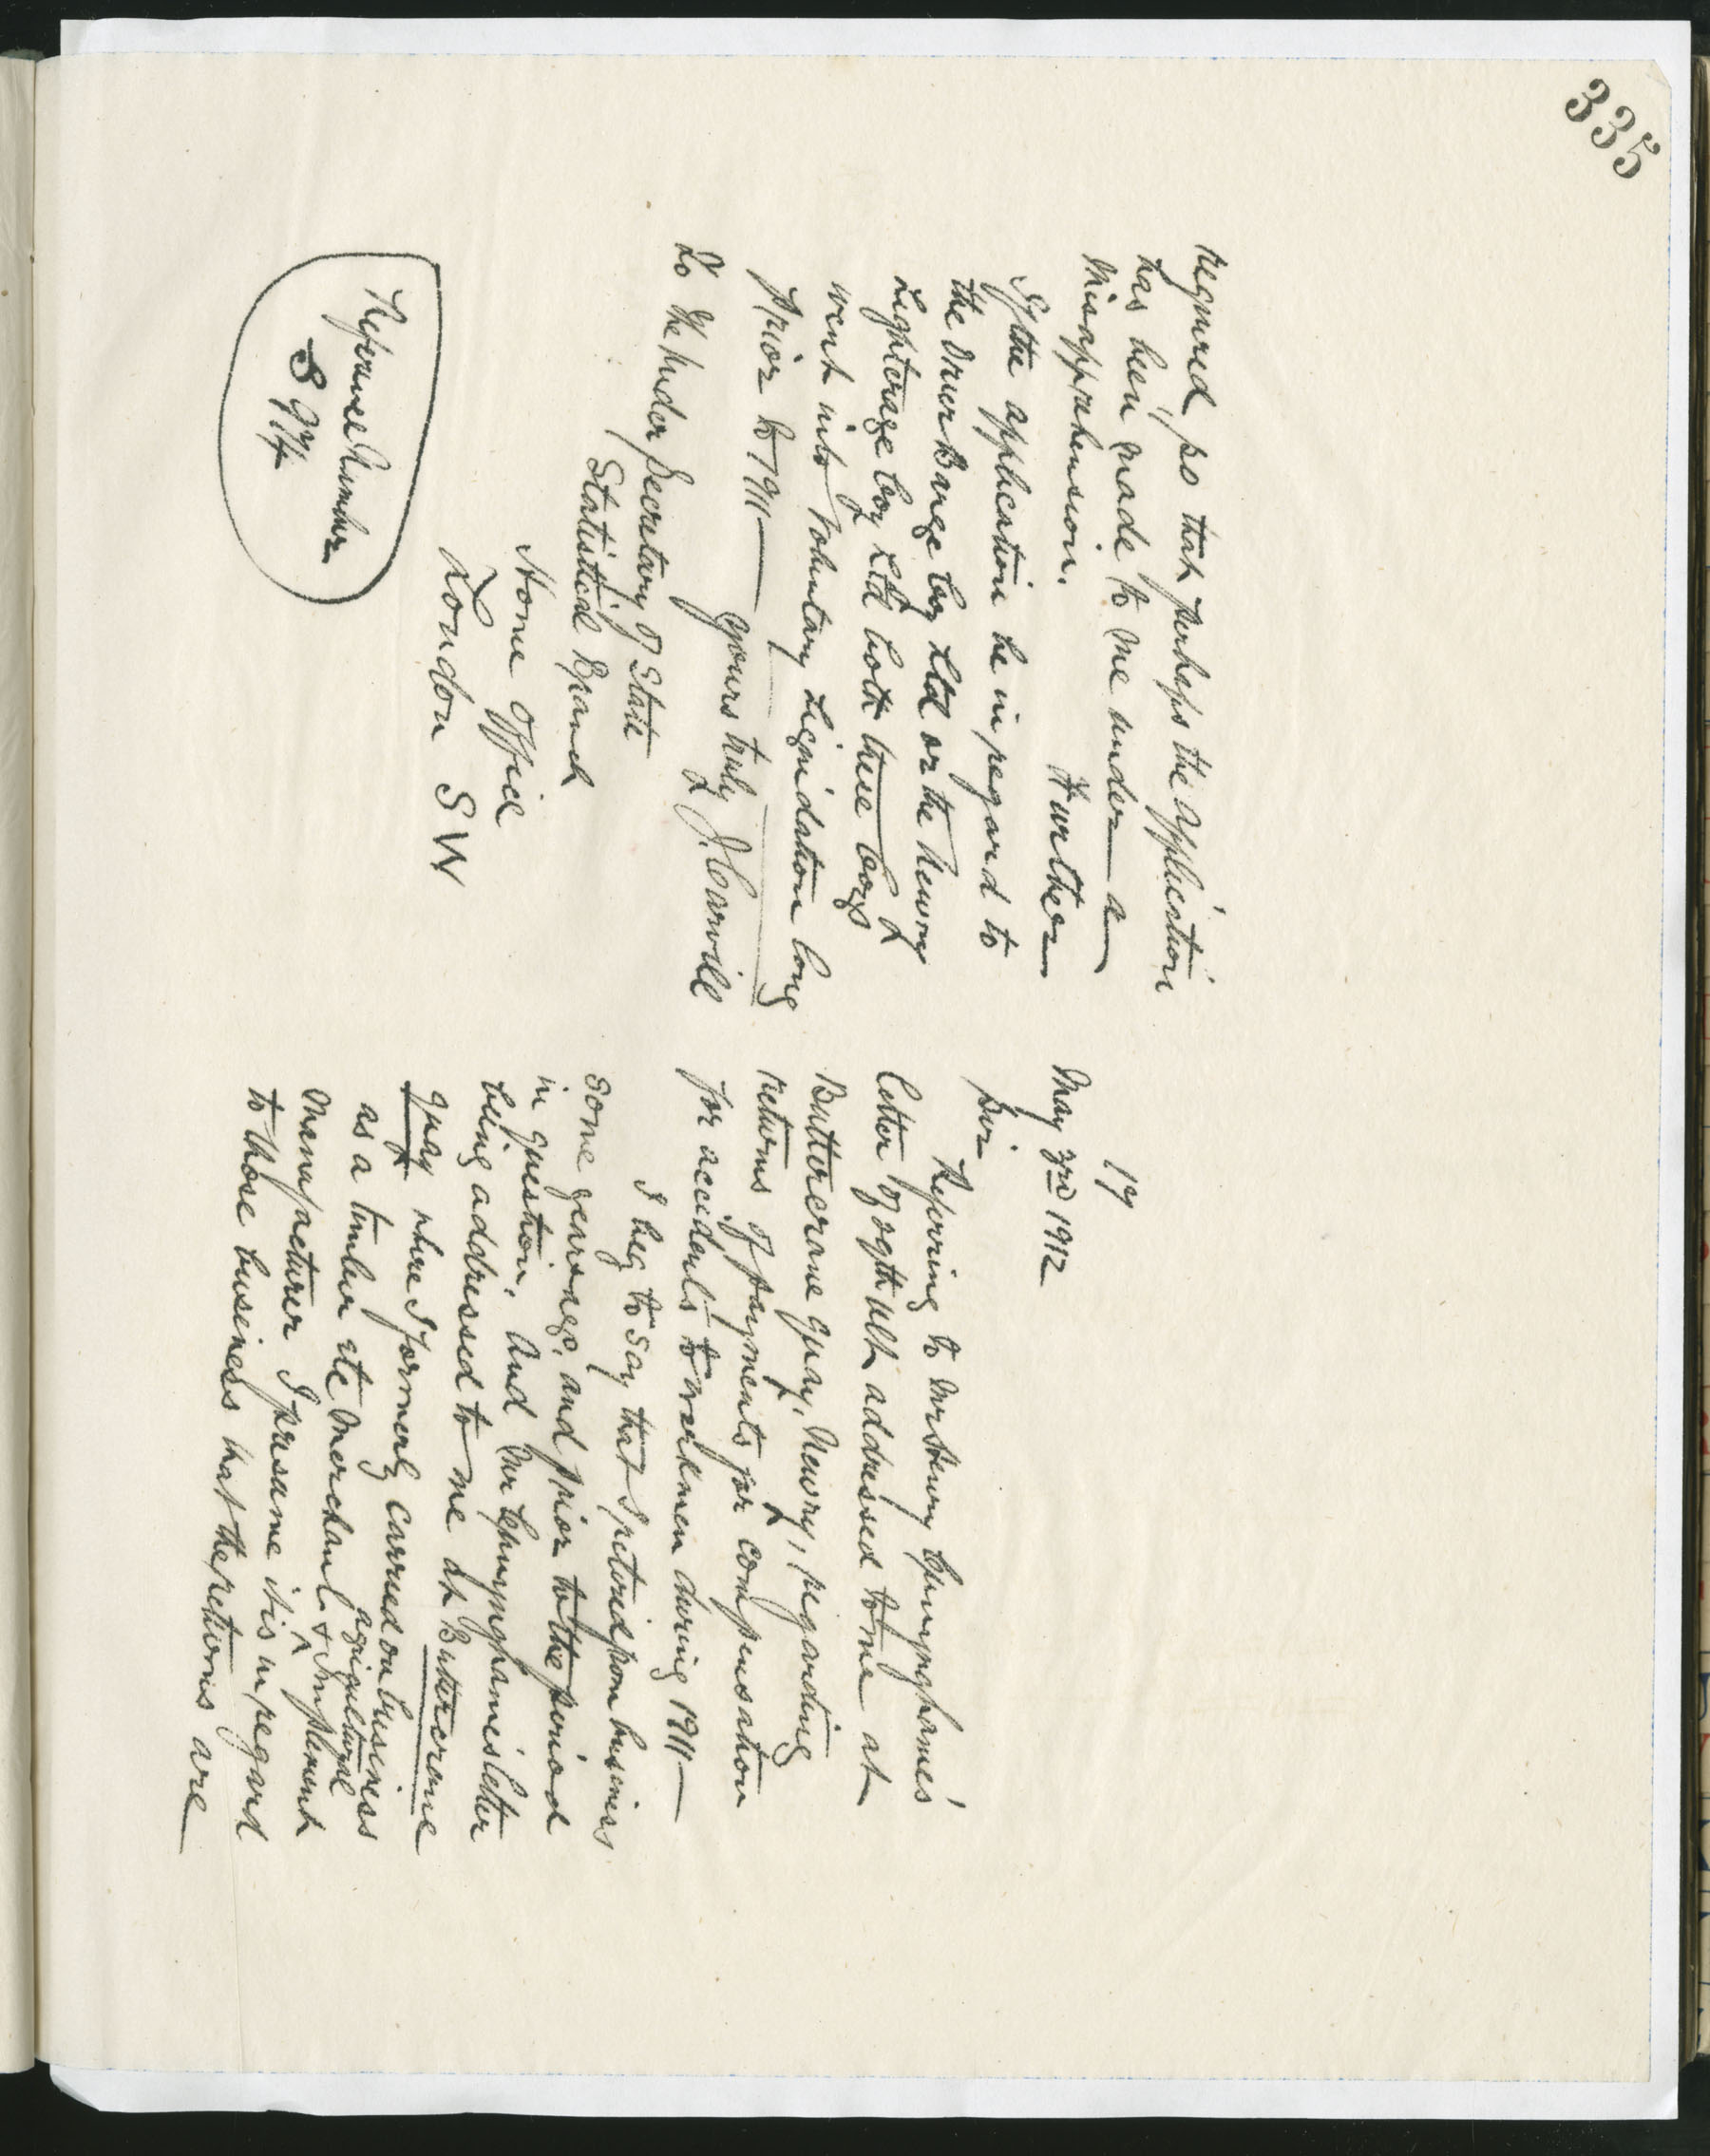 335
17
May 3rd 1912
Sir
Referring to Mr Henry Cunynghame's
letter of 29th ult addressed to me at
Buttercrane Quay, Newry, regarding
returns of payments for compensation
for accidents to workmen during 1911—
I beg to say that I retired from business
some years ago, and prior to the period
in question, and Mr Cunynghame's letter
being addressed to me at Buttercrane
Quay where I formerly carried on business
as a timber etc Merchant & agricultural Implement
Manufacturer I presume it is in regard
to those business that the returns are
required so that perhaps the application
has been made to me under a
misapprehension.
Further
If the application be in regard to
the Ulster Barge Coy Ltd or the Newry
Lighterage Coy Ltd both these Coys
went into Voluntary Liquidation long
prior to 1911—
Yours truly
J. Carvill
To The Under Secretary of State
Statistical Branch
Home Office
London SW
Reference Number
S 974